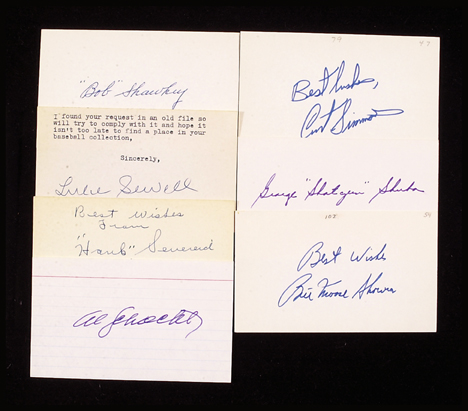 "Bob" Shawkey
I found your request in an old file so
will try to comply with it and hope it
isn't too late to find a place in your
baseball collection,
Sincerely,
Luke Sewell
Best Wishes
From
"Hank" Severeid
Al Schacht
79
Best Wishes,
Curt Simmons
George "Shotgun" Shuba
Best Wishes
Bill Moose Skowron